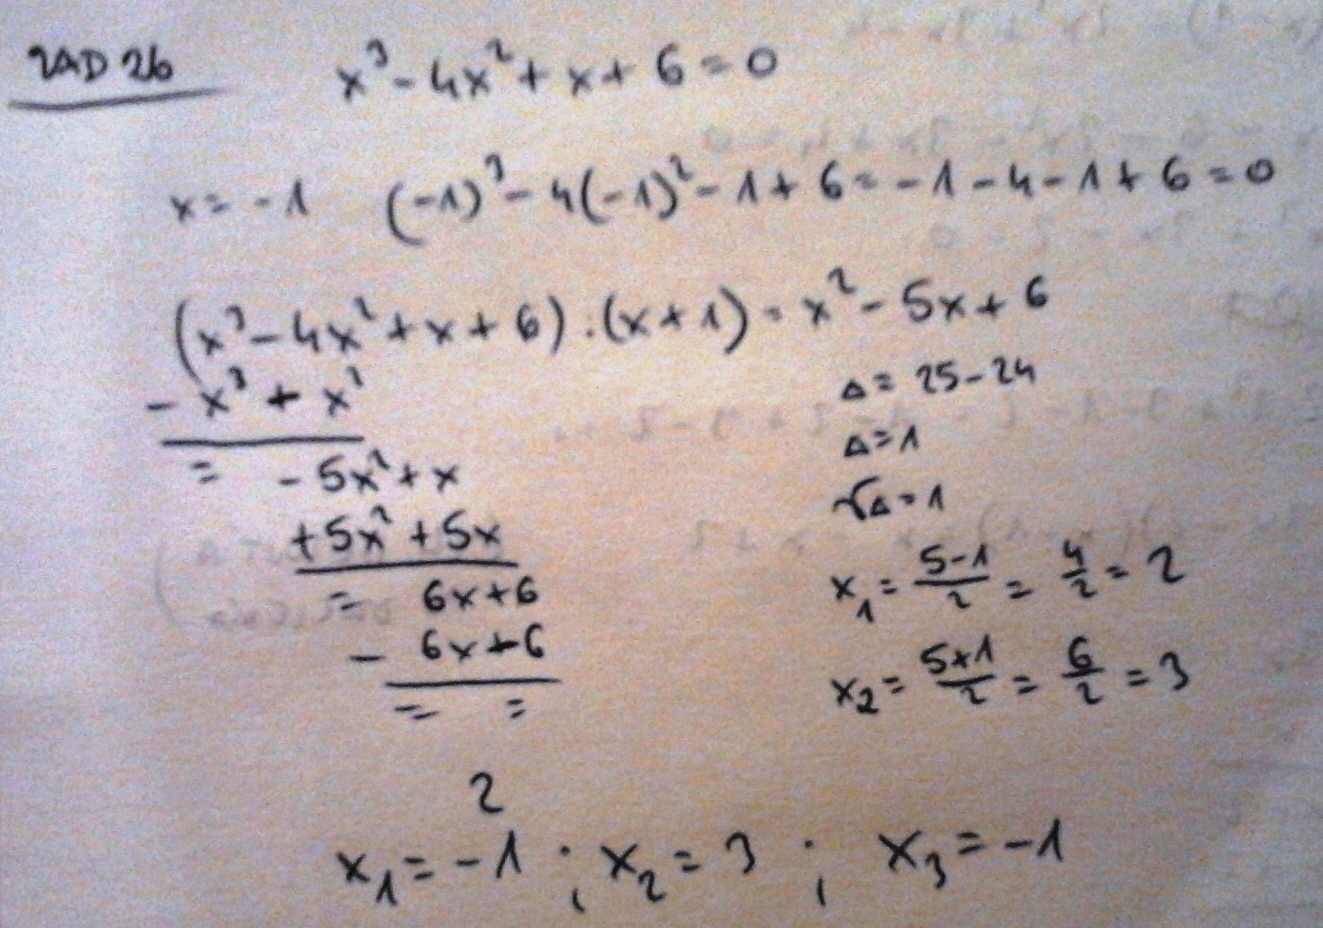 ZAD 26 x³ - 4x² + x + 6 = 0
x = -1 (-1)³ - 4(-1)² - 1 + 6 = -1 - 4 - 1 + 6 = 0
(x³ - 4x² + x + 6) : (x + 1) = x² - 5x + 6
- x³ + x²
= - 5x² + x
+ 5x² + 5x
= 6x + 6
- 6x + 6
= =
Δ = 25 - 24
Δ = 1
√Δ = 1
x₁ = (5-1)/2 = 4/2 = 2
x₂ = (5+1)/2 = 6/2 = 3
2
x₁ = -1 ; x₂ = 3 ; x₃ = -1